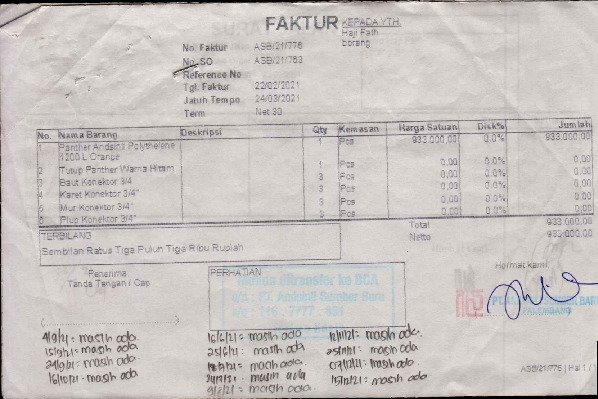 FAKTUR
KEPADA YTH.
Haji Fath
borang
No. Faktur ASB/21/776
No. SO ASB/21/763
Reference No
Tgl. Faktur 22/02/2021
Jatuh Tempo 24/03/2021
Term Net 30
No. Nama Barang Deskripsi Qty Kemasan Harga Satuan Disk% Jumlah
1 Panther Andshill Polythelene 1 Pcs 933.000,00 0.0% 933.000,00
1200 L Orange
2 Tutup Panther Warna Hitam 1 Pcs 0,00 0.0% 0,00
3 Baut Konektor 3/4 3 Pcs 0,00 0.0% 0,00
4 Karet Konektor 3/4" 3 Pcs 0,00 0.0% 0,00
5 Mur Konektor 3/4" 3 Pcs 0,00 0.0% 0,00
6 Plug Konektor 3/4" 3 Pcs 0,00 0.0% 0,00
Total 933.000,00
Netto 933.000,00
TERBILANG
Sembilan Ratus Tiga Puluh Tiga Ribu Rupiah
Penerima
Tanda Tangan / Cap
PERHATIAN
ditransfer ke BCA
PT. Andshill Sumber Baru
7777
Hormat kami
PALEMBANG
masih ada
15/9/21 = masih ada
24/9/21 = masih ada
16/10/21 = masih ada
16/6/21 = masih ada
25/6/21 = masih ada
masih ada
masih ada
masih ada
12/11/21 = masih ada
25/11/21 = masih ada
07/12/21 = masih ada
15/12/21 = masih ada
ASB/21/776 | Hal 1 /